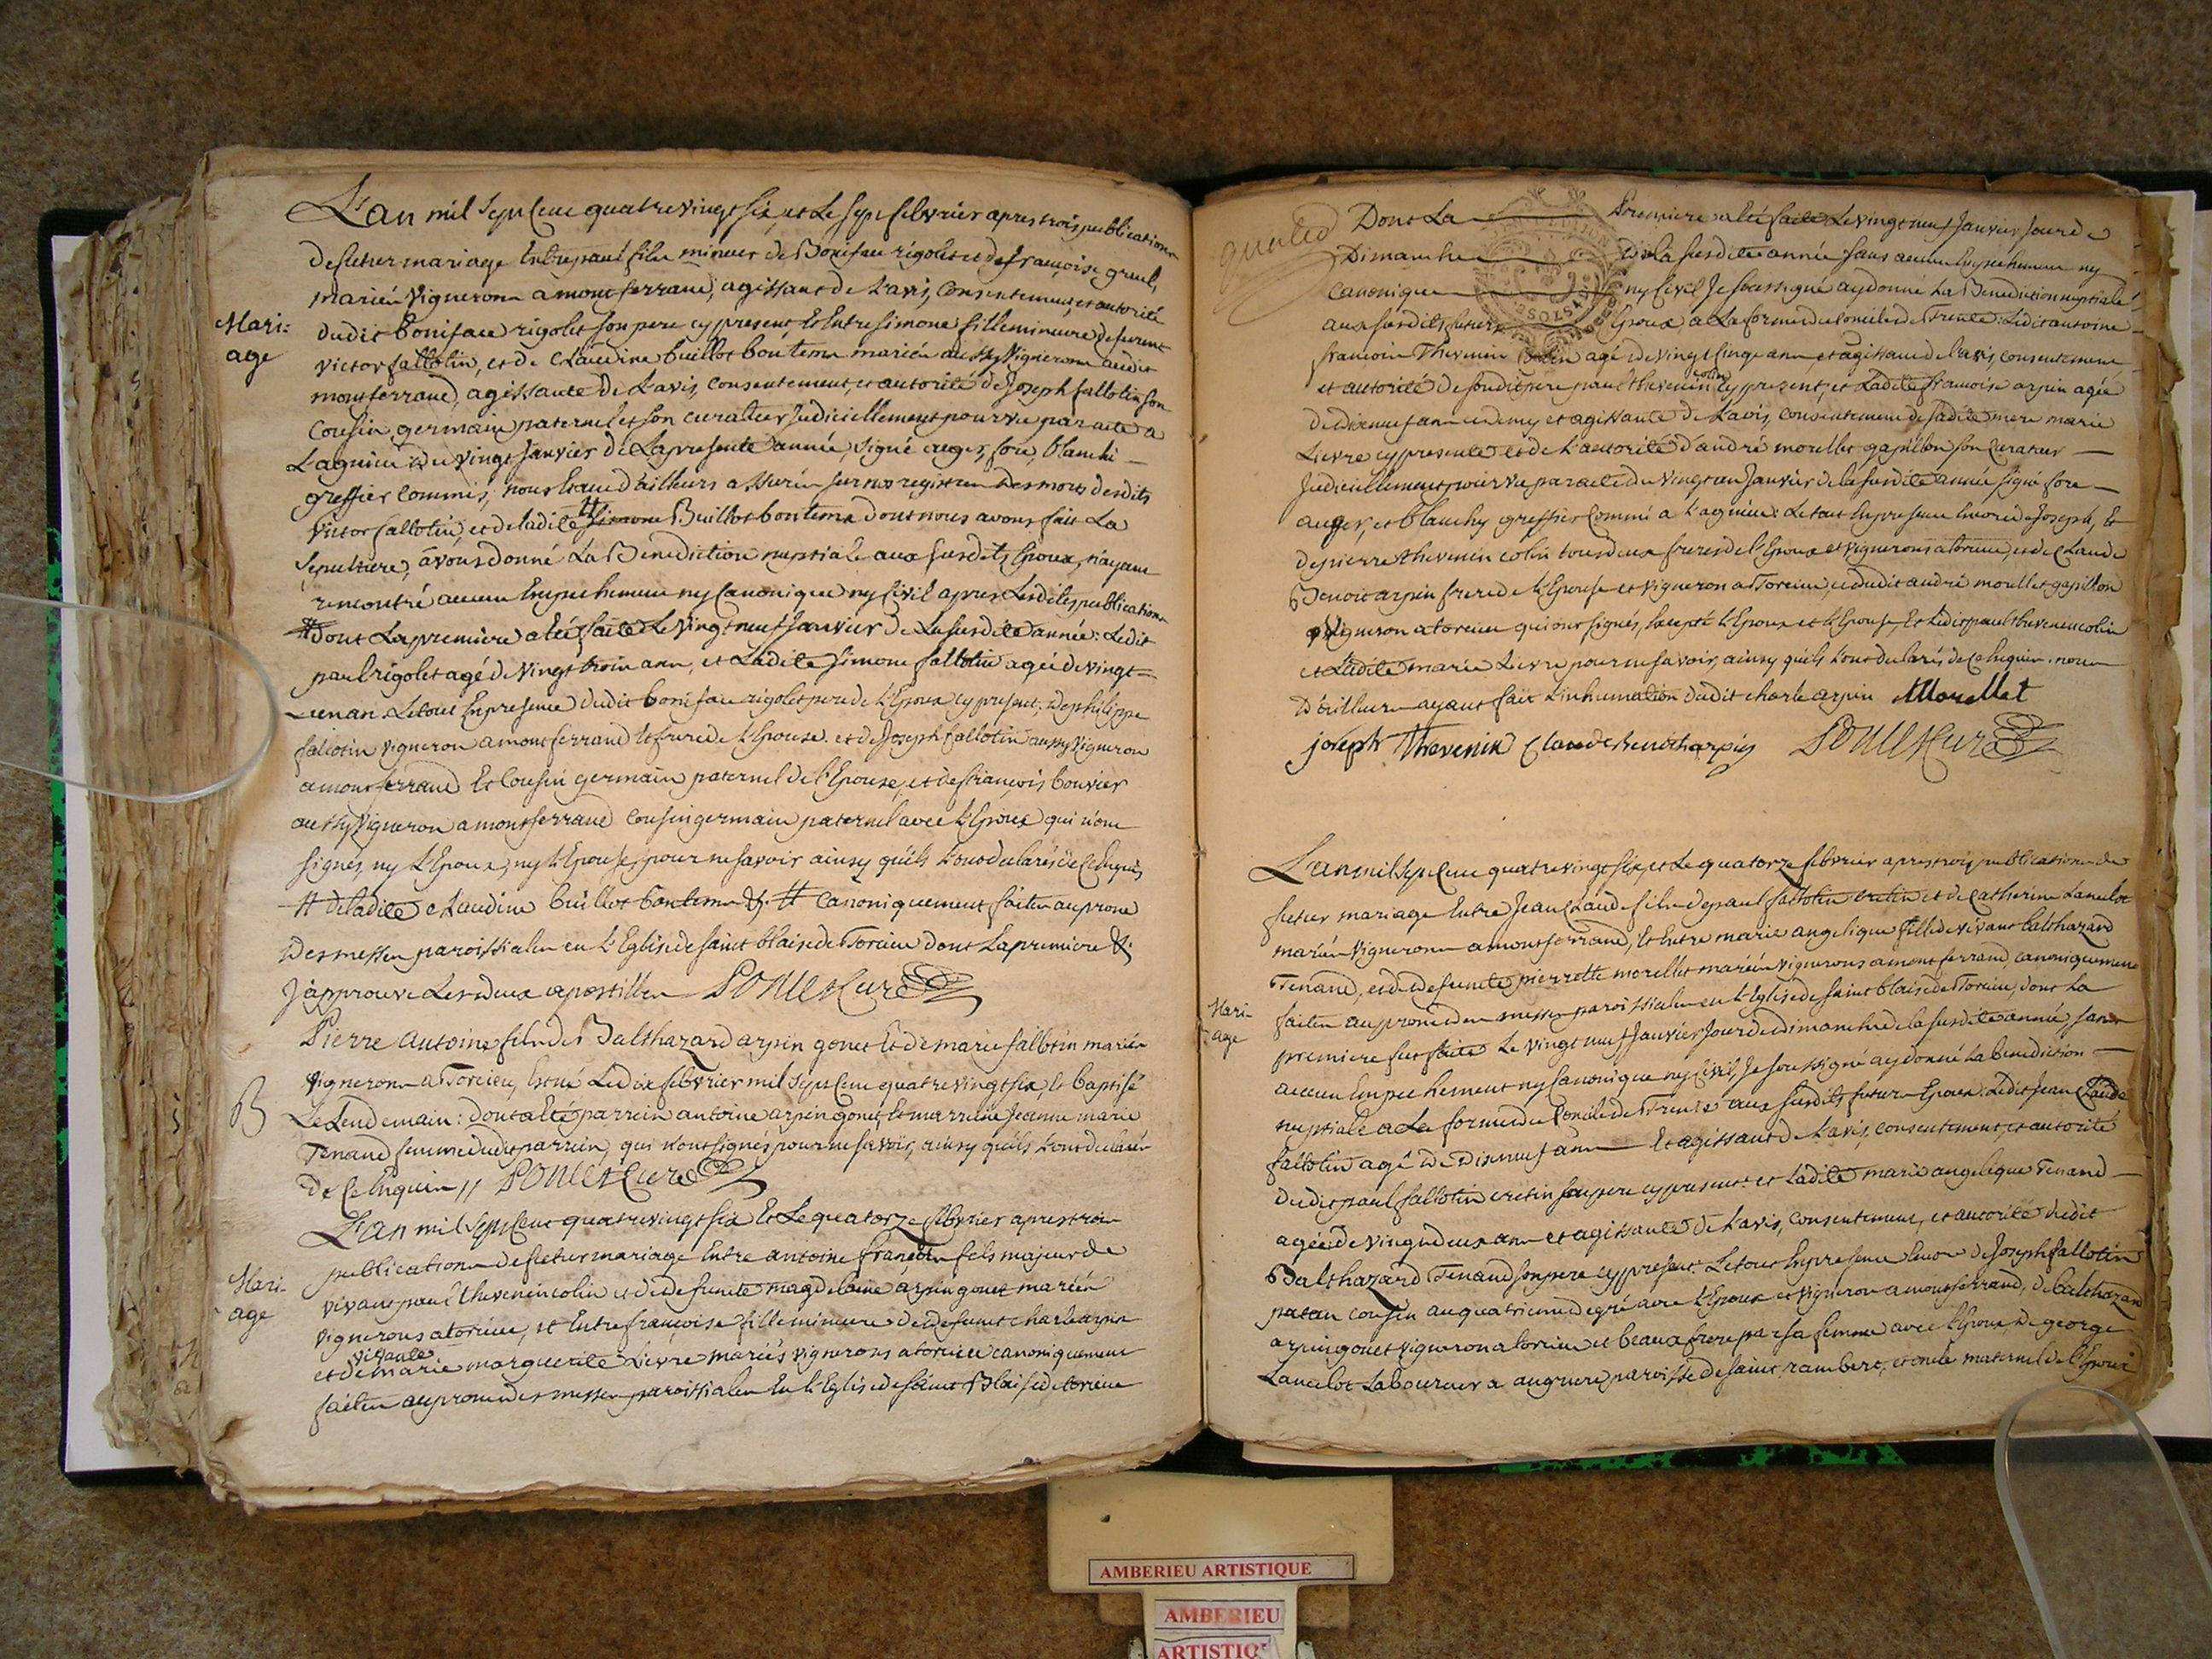 L'an mil sept cent quatre vingt six, et le sept febvrier apres trois publications
de futur mariage Entre paul fils mineur de Boniface rigolet et de françoise greul,
mariés Vignerons a montferrand, agissant de L'avis, Consentement, et autorité
Mari=
age
dudit boniface rigolet son pere cy present, Et Entre simone fille mineure de defunt
victor fallotin, et de Claudine buillot bontems mariés aussy Vignerons audit
montferrand, agissante de L'avis, consentement, et autorité de Joseph fallotin son
Cousin germain paternel et son curateur Judiciellement pourvu par acte a
Lagnieu du vingt Janvier de La presente année, signé auger, fore, blanchi
greffier Commis; nous Etant d'ailleurs assurés sur nos registres Des morts desdits
Victor fallotin, et de ladite # simone Buillot bontems dont nous avons fait La
Sepulture, avons donné La Benediction nuptiale aux susdits Epoux, n'ayant
rencontré aucun Empechement ny Canonique ny Civil apres Lesdites publications
# dont La premiere a été faite Le vingt neuf Janvier de La susdite année: Ledit
paul rigolet agé de vingt trois ans, et Ladite simone fallotin agée de vingt =
un an. Le tout En presence dudit boniface rigolet pere de L'Epoux cy present, de philippe
fallotin vigneron a montferrand Et frere de L'Epouse. et de Joseph fallotin aussy Vigneron
a montferrand Et Cousin germain paternel de L'Epouse, et de françois bouvier
aussy Vigneron a montferrand Cousin germain paternel avec L'Epoux qui n'ont
signés, ny L'Epoux, ny L'Epouse, pour ne savoir ainsy qu'ils L'ont declarés de Ce Enquis,
# de ladite Claudine buillot bontems &. # Canoniquement faites au prone
Des messes paroissiales en L'Eglise de saint blaise de Torcieu dont La premiere &
J'approuve Les deux apostilles PONCET Curé
Pierre Antoine fils de Balthazard arpin gonet Et de marie fallotin mariés
Vignerons a Torcieu, Est né Le dix febvrier mil sept cent quatre vingt six, Et baptisé
B
Le Lendemain: dont a Eté parrein antoine arpin gonet, Et marreine Jeanne marie
Tenand femme dudit parrein, qui n'ont signés pour ne savoir, ainsy qu'ils L'ont declarés
de Ce Enquis // PONCET Curé
L'an mil Sept Cent quatre vingt six Et Le quatorze febvrier apres trois
publications de futur mariage Entre antoine françois fils majeur de
Mari-
age
vivant paul thevenin colin et de defunte magdelaine arpin gonet mariés
vignerons a torcieu, et Entre françoise fille mineure de defunt charle arpin
vivante
et de marie marguerite Lievre mariés vignerons a torcieu canoniquement
faites au prone des messes paroissiales En L'Eglise de saint Blaise de torcieu
Dont La premiere a été faite Le vingt neuf Janvier Jour de
Dimanche de la susdite année sans aucun Empechement ny
Canonique ny Civil Je soussigné ay donné La Benediction nuptiale
aux susdits futurs Epoux a La forme du Concile de Trente: Ledit antoine
francois Thevenin Colin agé de vingt Cinq ans, et agissant de L'avis, consentement
et autorité de son dit pere paul thevenin colin cy present, et Ladite francoise arpin agée
de dixneuf ans et demy et agissante de L'avis, consentement de sa dite mere marie
Lievre cy presente et de L'autorité d'andré morellet gapillon son Curateur
Judiciellement pourvu par acte du vingt un Janvier de la susdite année signé fore
auger, et blanchy greffier Commi a Lagnieu: Le tout En presence Encore de Joseph, Et
de pierre thevenin colin tous deux freres de L'Epoux et vignerons a torcieu, et de Claude
Benoit arpin frere de L'Epouse et vigneron a Torcieu, et dudit andré morellet gapillon
Vigneron a torcieu qui ont signés, Excepté L'Epoux et L'Epouse, Et Ledit paul thevenin colin
et Ladite marie Lievre pour ne savoir, ainsy qu'ils L'ont declarés de Ce Enquis. nous
D'ailleurs ayant fait L'inhumation dudit charle arpin Morellet
joseph thevenin Claude Benoit arpin PONCET Curé
L'an mil sept Cent quatre vingt six, et Le quatorze febvrier apres trois publications de
futur mariage Entre Jean Claude fils de paul fallotin cretin et de Catherine Lancelot
mariés Vignerons a montferrand, Et Entre marie angelique fille de vivant balthazard
Tenand, et de defunte pierrette morellet mariés vignerons a montferrand, canoniquement
Mari-
age
faites au prone des messes paroissiales en L'Eglise de saint blaise de Torcieu, dont La
premiere fut faite Le vingt neuf Janvier Jour de dimanche de la susdite année, sans
aucun Empechement ny Canonique ny Civil, Je soussigné ay donné La benediction
nuptiale a La forme du Concile de Trente aux susdits futurs Epoux: Ledit Jean Claude
fallotin agé de Dixneuf ans Et agissant de L'avis, consentement, et autorité
dudit paul fallotin cretin son pere cy present: et Ladite marie angelique Tenand
agée de vingt deux ans et agissante de L'avis, Consentement, et autorité dudit
Balthazard Tenand son pere cy present. Le tout En presence Encore de Joseph fallotin
patan cousin au quatrieme degré avec L'Epoux et vigneron a montferrand, de balthazard
arpin gonet vigneron a torcieu et beaux frere par sa femme avec L'Epoux, de george
Lancelot Laboureur a angrieres paroisse de saint rambert, et oncle maternel de L'Epoux
AMBERIEU ARTISTIQUE
AMBERIEU
ARTISTIQ